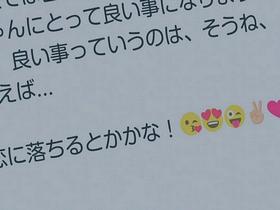 んにとって良い事にな
良い事っていうのは、そうね、
えば…
恋に落ちるとかかな！😘😍😜✌🏻❤